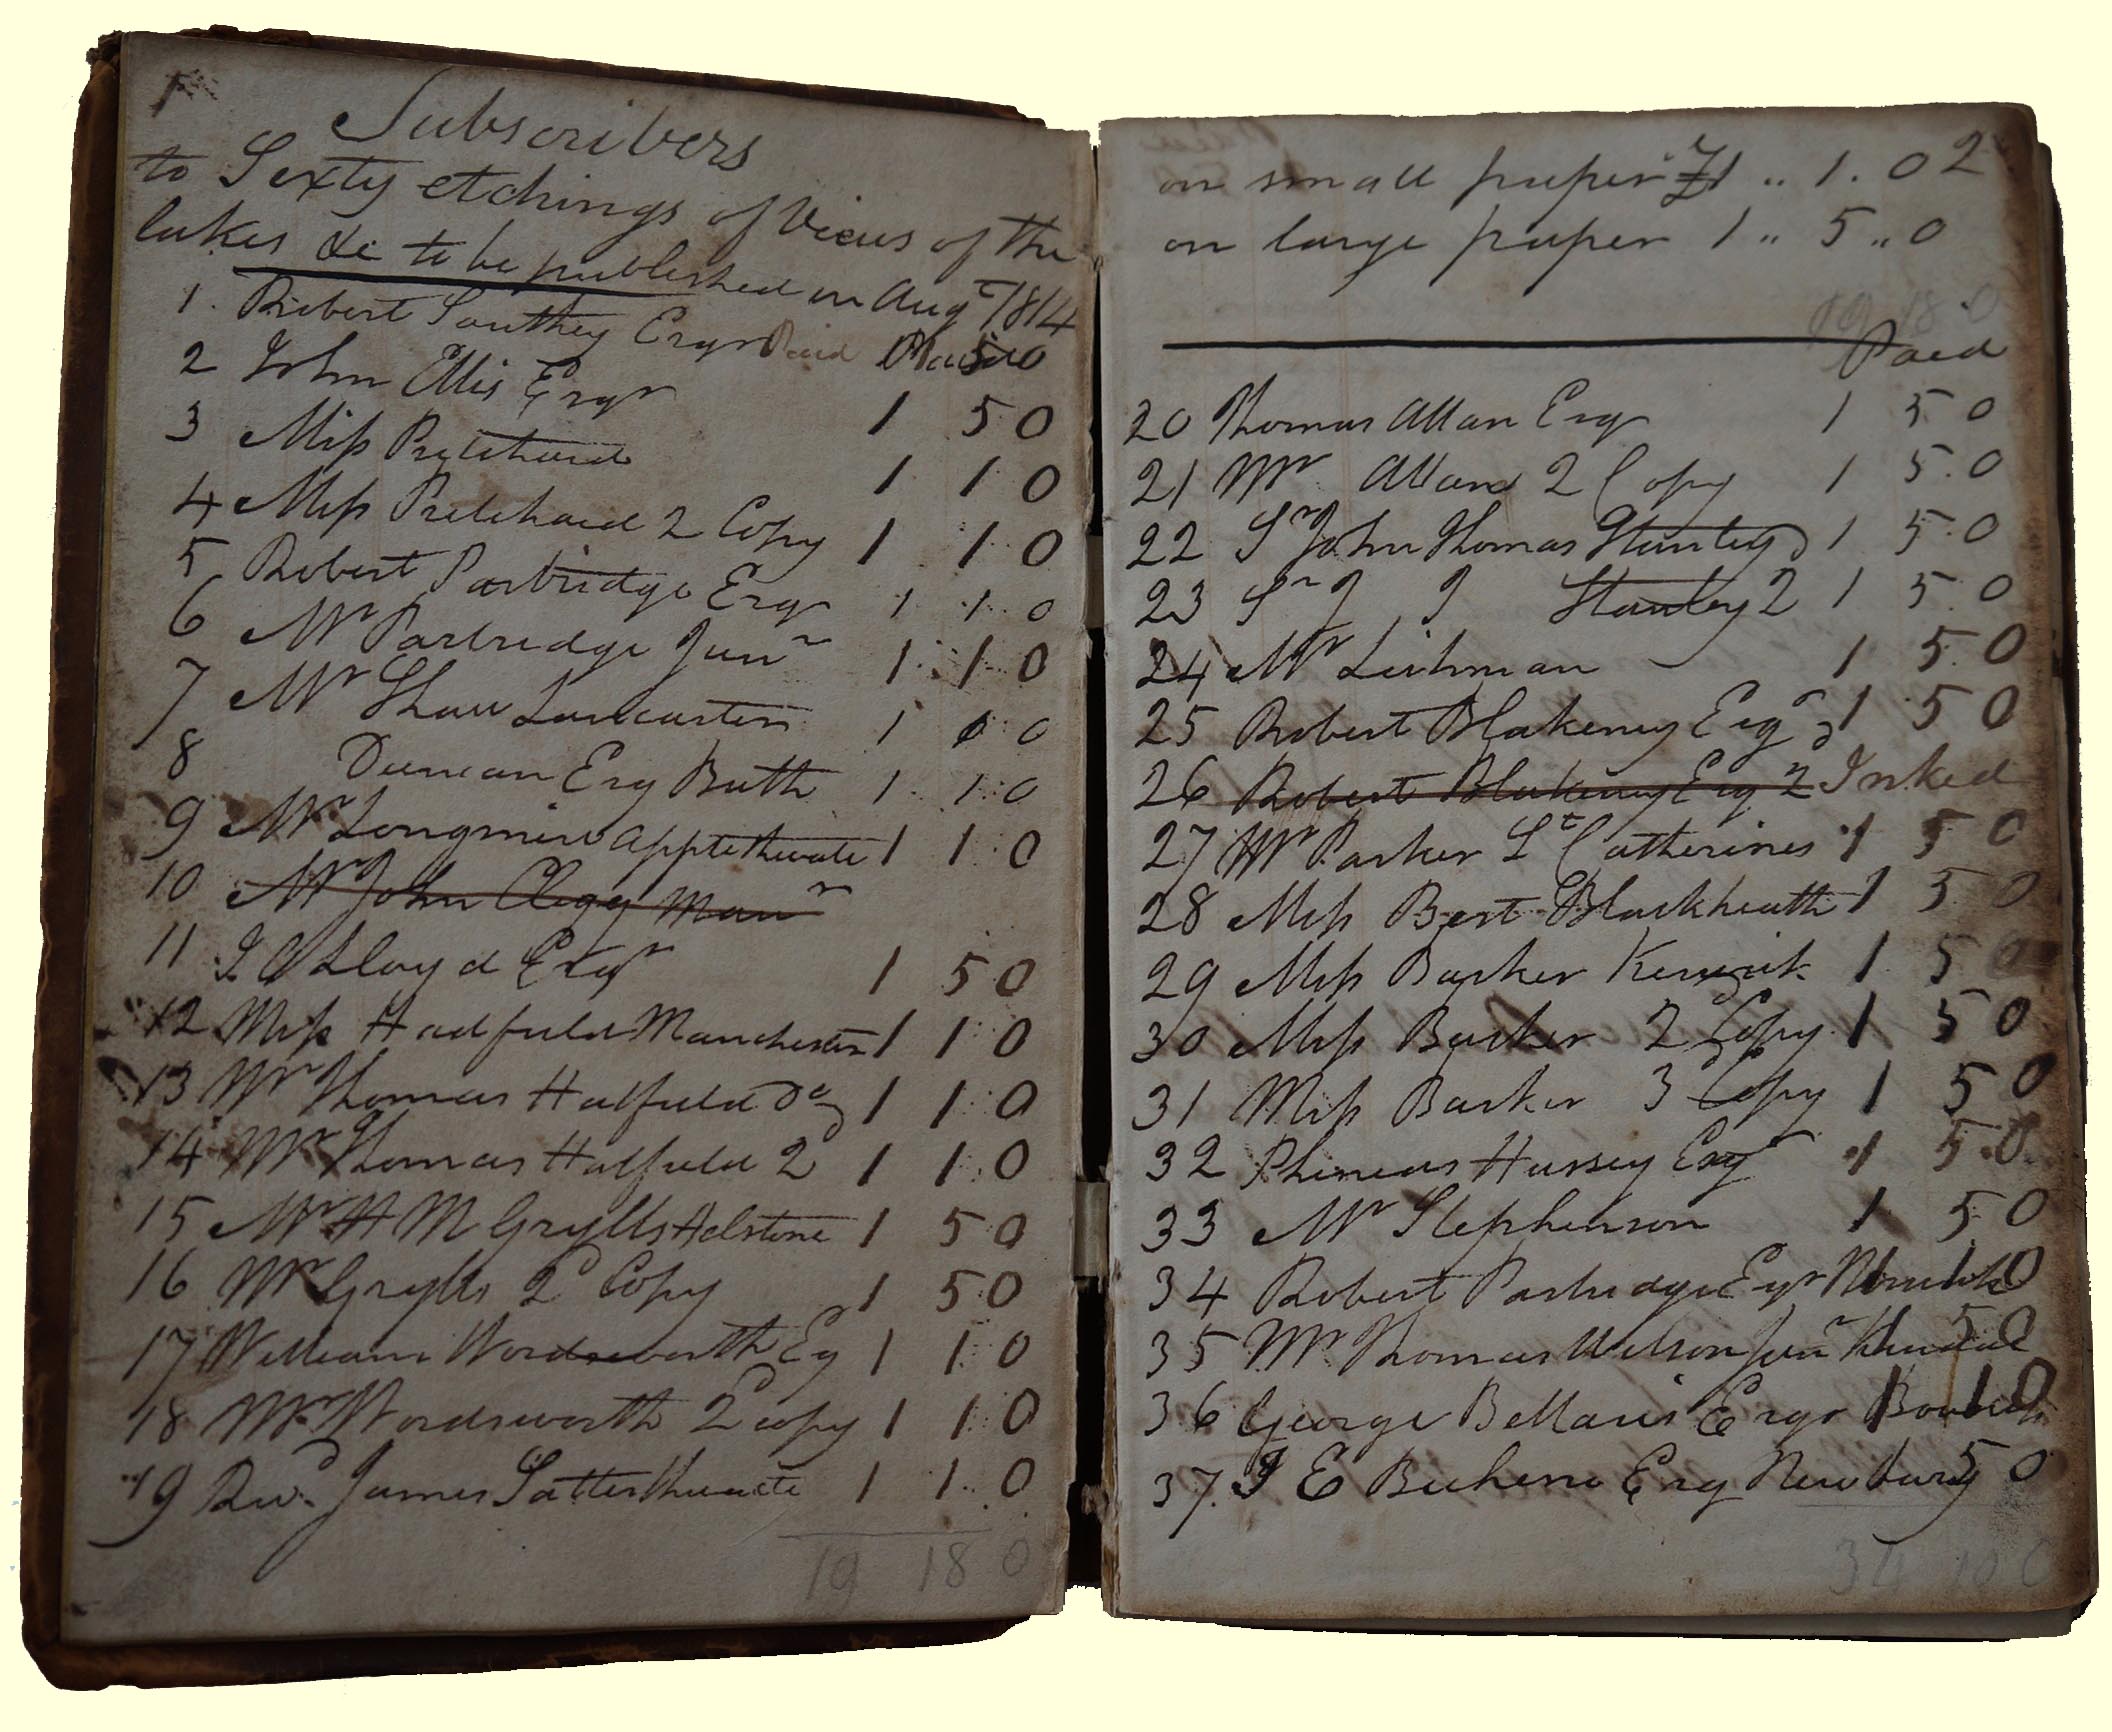 1
Subscribers
to Sixty etchings of Views of the
lakes &c to be published in Augt 1814
1. Robert Southey Esqr Paid Paid 5 0
2 John Ellis Esqr 1 5 0
3 Miss Pritchard 1 1 0
4 Miss Pritchard 2 Copy 1 1 0
5 Robert Partridge Esqr 1 1 0
6 Mr Partridge Junr 1 1 0
7 Mr Shaw Lancaster 1 0
8 Duncan Esq Bath 1 1 0
9 Mr Longmire Applethwaite 1 1 0
10 Mr John Clegg Manr
11 Lloyd Esqr 1 5 0
12 Miss Hadfield Manchester 1 1 0
13 Mr Thomas Hatfield Do 1 1 0
14 Mr Thomas Hatfield 2 1 1 0
15 Mr H M Grylls Helstone 1 5 0
16 Mr Grylls 2d Copy 1 5 0
17 William Wordsworth Esq 1 1 0
18 Mr Wordsworth 2 copy 1 1 0
19 Revd James Satterthwaite 1 1 0
19 18 0
2
on small paper £1 .. 1 . 0
on large paper 1 .. 5 .. 0
19 18 0
Paid
20 Thomas Allan Esqr 1 5 0
21 Mr Allan 2 Copy 1 5 0
22 Sr John Thomas Stanley 1 5 0
23 Sr J J Stanley 2 1 5 0
24 Mr Lishman 1 5 0
25 Robert Blakeney Esqr 1 5 0
26 Robert Blakeney Esq 2 Inked
27 Mr Parker St Catherines 1 5 0
28 Miss Best Blackheath 1 5 0
29 Miss Barker Keswick 1 5 0
30 Miss Barker 2 Copy 1 5 0
31 Miss Barker 3 Copy 1 5 0
32 Phineas Hussey Esqr 1 5 0
33 Mr Stephenson 1 5 0
34 Robert Partridge Esqr Norwich 1 1 0
35 Mr Thomas Wilson Junr Kendal 5 0
36 George Bellasis Esqr 1 1 0
37. J E Bicheno Esq Newbury 5 0
34 10 0